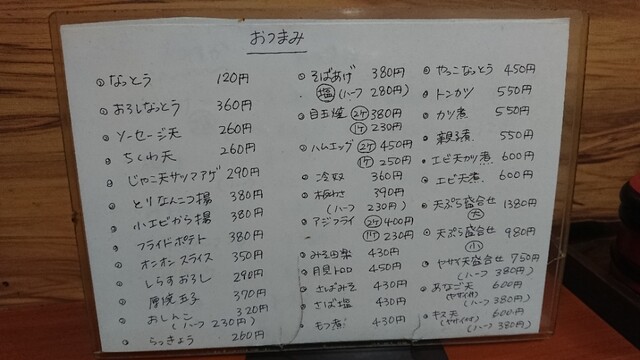 おつまみ
なっとう 120円
おろしなっとう 360円
ソーセージ天 260円
ちくわ天 260円
じゃこ天サツマアゲ 290円
とりなんこつ揚 380円
小エビから揚 380円
フライドポテト 380円
オニオンスライス 350円
しらすおろし 290円
厚焼玉子 370円
おしんこ 320円
(ハーフ 230円)
らっきょう 260円
そばあげ 380円
塩 (ハーフ 280円)
目玉焼 2ケ 380円
1ケ 230円
ハムエッグ 2ケ 450円
1ケ 250円
冷奴 360円
板わさ 390円
(ハーフ 230円)
アジフライ 2ケ 400円
1ケ 230円
みそ田楽 430円
月見トロロ 450円
さばみそ 430円
さば塩 430円
もつ煮 430円
やっこなっとう 450円
トンカツ 550円
カツ煮 550円
親子煮 550円
エビ天カツ煮 600円
エビ天煮 600円
天ぷら盛合せ 1380円
大
天ぷら盛合せ 980円
小
ヤサイ天盛合せ 750円
(ハーフ 380円)
あなご天 600円
(ヤサイ付) (ハーフ 380円)
キス天 600円
(ヤサイ付) (ハーフ 380円)